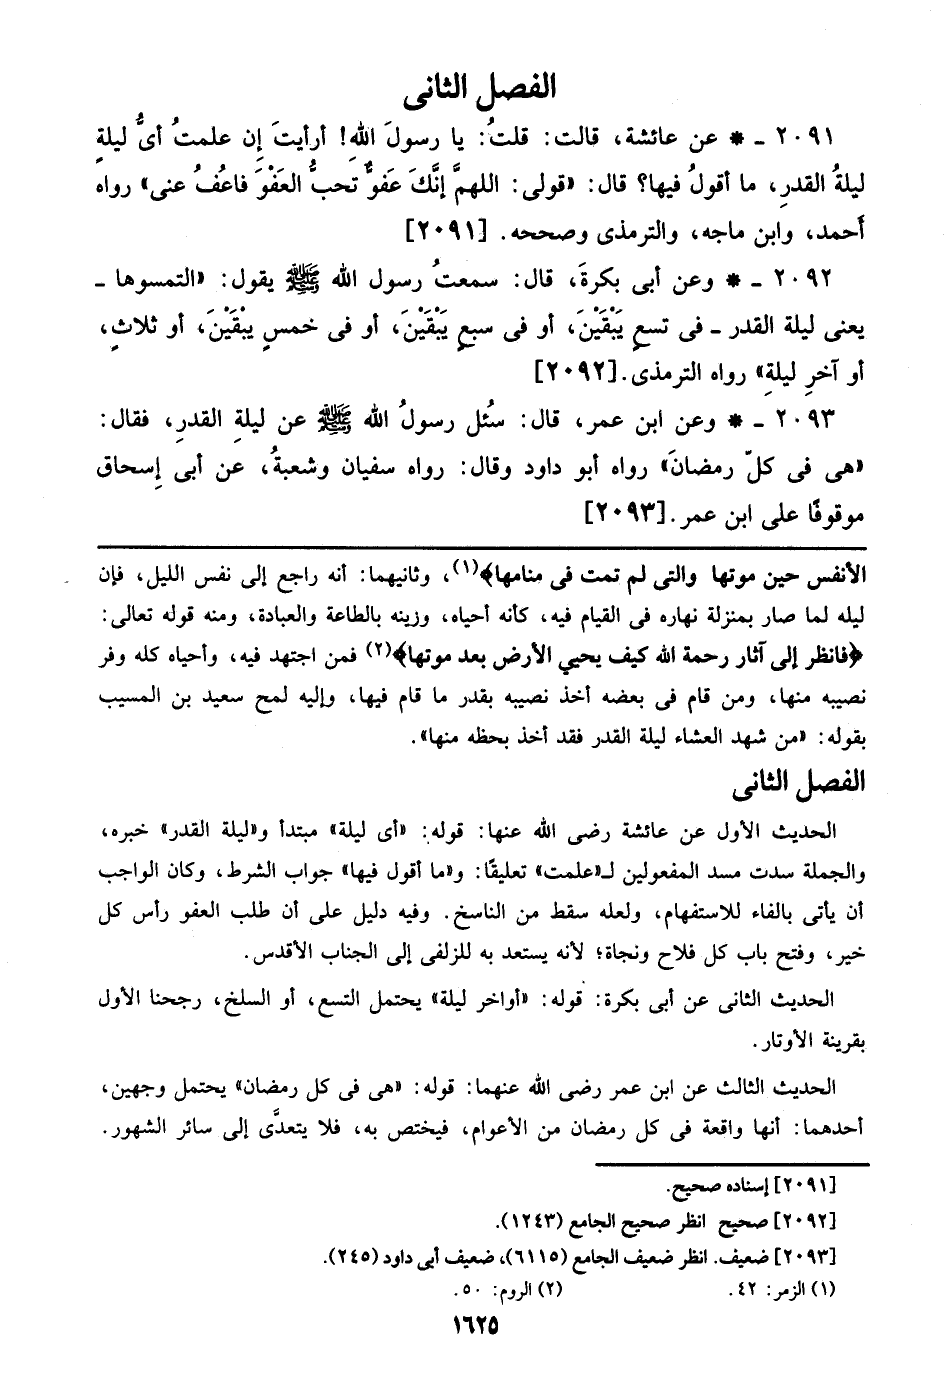 الفصل الثانى
٢٠٩١ ـ * عن عائشة، قالت: قلتُ: يا رسولَ الله! أرأيتَ إِن علمتُ أىُّ ليلةٍ
ليلةُ القدرِ، ما أقولُ فيها؟ قال: «قولى: اللهمَّ إنَّكَ عَفوٌّ تَحبُّ العَفْوَ فاعُفُ عنى» رواه
أَحمد، وابن ماجه، والترمذى وصححه. [٢٠٩١]
٢٠٩٢ ـ * وعن أبى بكرةَ، قال: سمعتُ رسول الله ﷺ يقول: «التمسوها ـ
يعنى ليلة القدر ـ فى تسعٍ يَبْقَيْنَ، أو فى سبعٍ يَبْقَيْنَ، أو فى خمسٍ يَبْقَيْنَ، أو ثلاثٍ،
أو آخرِ ليلةِ» رواه الترمذى. [٢٠٩٢]
٢٠٩٣ ـ * وعن ابن عمر، قال: سُئل رسولُ الله ﷺ عن ليلةِ القدرِ، فقال:
«هى فى كلّ رمضانَ» رواه أبو داود وقال: رواه سفيان وشعبةُ، عن أبى إِسحاق
موقوفًا على ابن عمر. [٢٠٩٣]
الأنفس حين موتها والتى لم تمت فى منامها﴾(١)، وثانيهما: أنه راجع إلى نفس الليل، فإن
ليله لما صار بمنزلة نهاره فى القيام فيه، كأنه أحياه، وزينه بالطاعة والعبادة، ومنه قوله تعالى:
﴿فانظر إلى آثار رحمة الله كيف يحيي الأرض بعد موتها﴾(٢) فمن اجتهد فيه، وأحياه كله وفر
نصيبه منها، ومن قام فى بعضه أخذ نصيبه بقدر ما قام فيها، وإليه لمح سعيد بن المسيب
بقوله: «من شهد العشاء ليلة القدر فقد أخذ بحظه منها».
الفصل الثانى
الحديث الأول عن عائشة رضى الله عنها: قوله: «أى ليلة» مبتدأ و«ليلة القدر» خبره،
والجملة سدت مسد المفعولين لـ«علمت» تعليقًا: و«ما أقول فيها» جواب الشرط، وكان الواجب
أن يأتى بالفاء للاستفهام، ولعله سقط من الناسخ. وفيه دليل على أن طلب العفو رأس كل
خير، وفتح باب كل فلاح ونجاة؛ لأنه يستعد به للزلفى إلى الجناب الأقدس.
الحديث الثانى عن أبى بكرة: قوله: «أواخر ليلة» يحتمل التسع، أو السلخ، رجحنا الأول
بقرينة الأوتار.
الحديث الثالث عن ابن عمر رضى الله عنهما: قوله: «هى فى كل رمضان» يحتمل وجهين،
أحدهما: أنها واقعة فى كل رمضان من الأعوام، فيختص به، فلا يتعدَّى إلى سائر الشهور.
[٢٠٩١] إسناده صحيح.
[٢٠٩٢] صحيح انظر صحيح الجامع (١٢٤٣).
[٢٠٩٣] ضعيف. انظر ضعيف الجامع (٦١١٥)، ضعيف أبى داود (٢٤٥).
(١) الزمر: ٤٢. (٢) الروم: ٥٠.
١٦٢٥